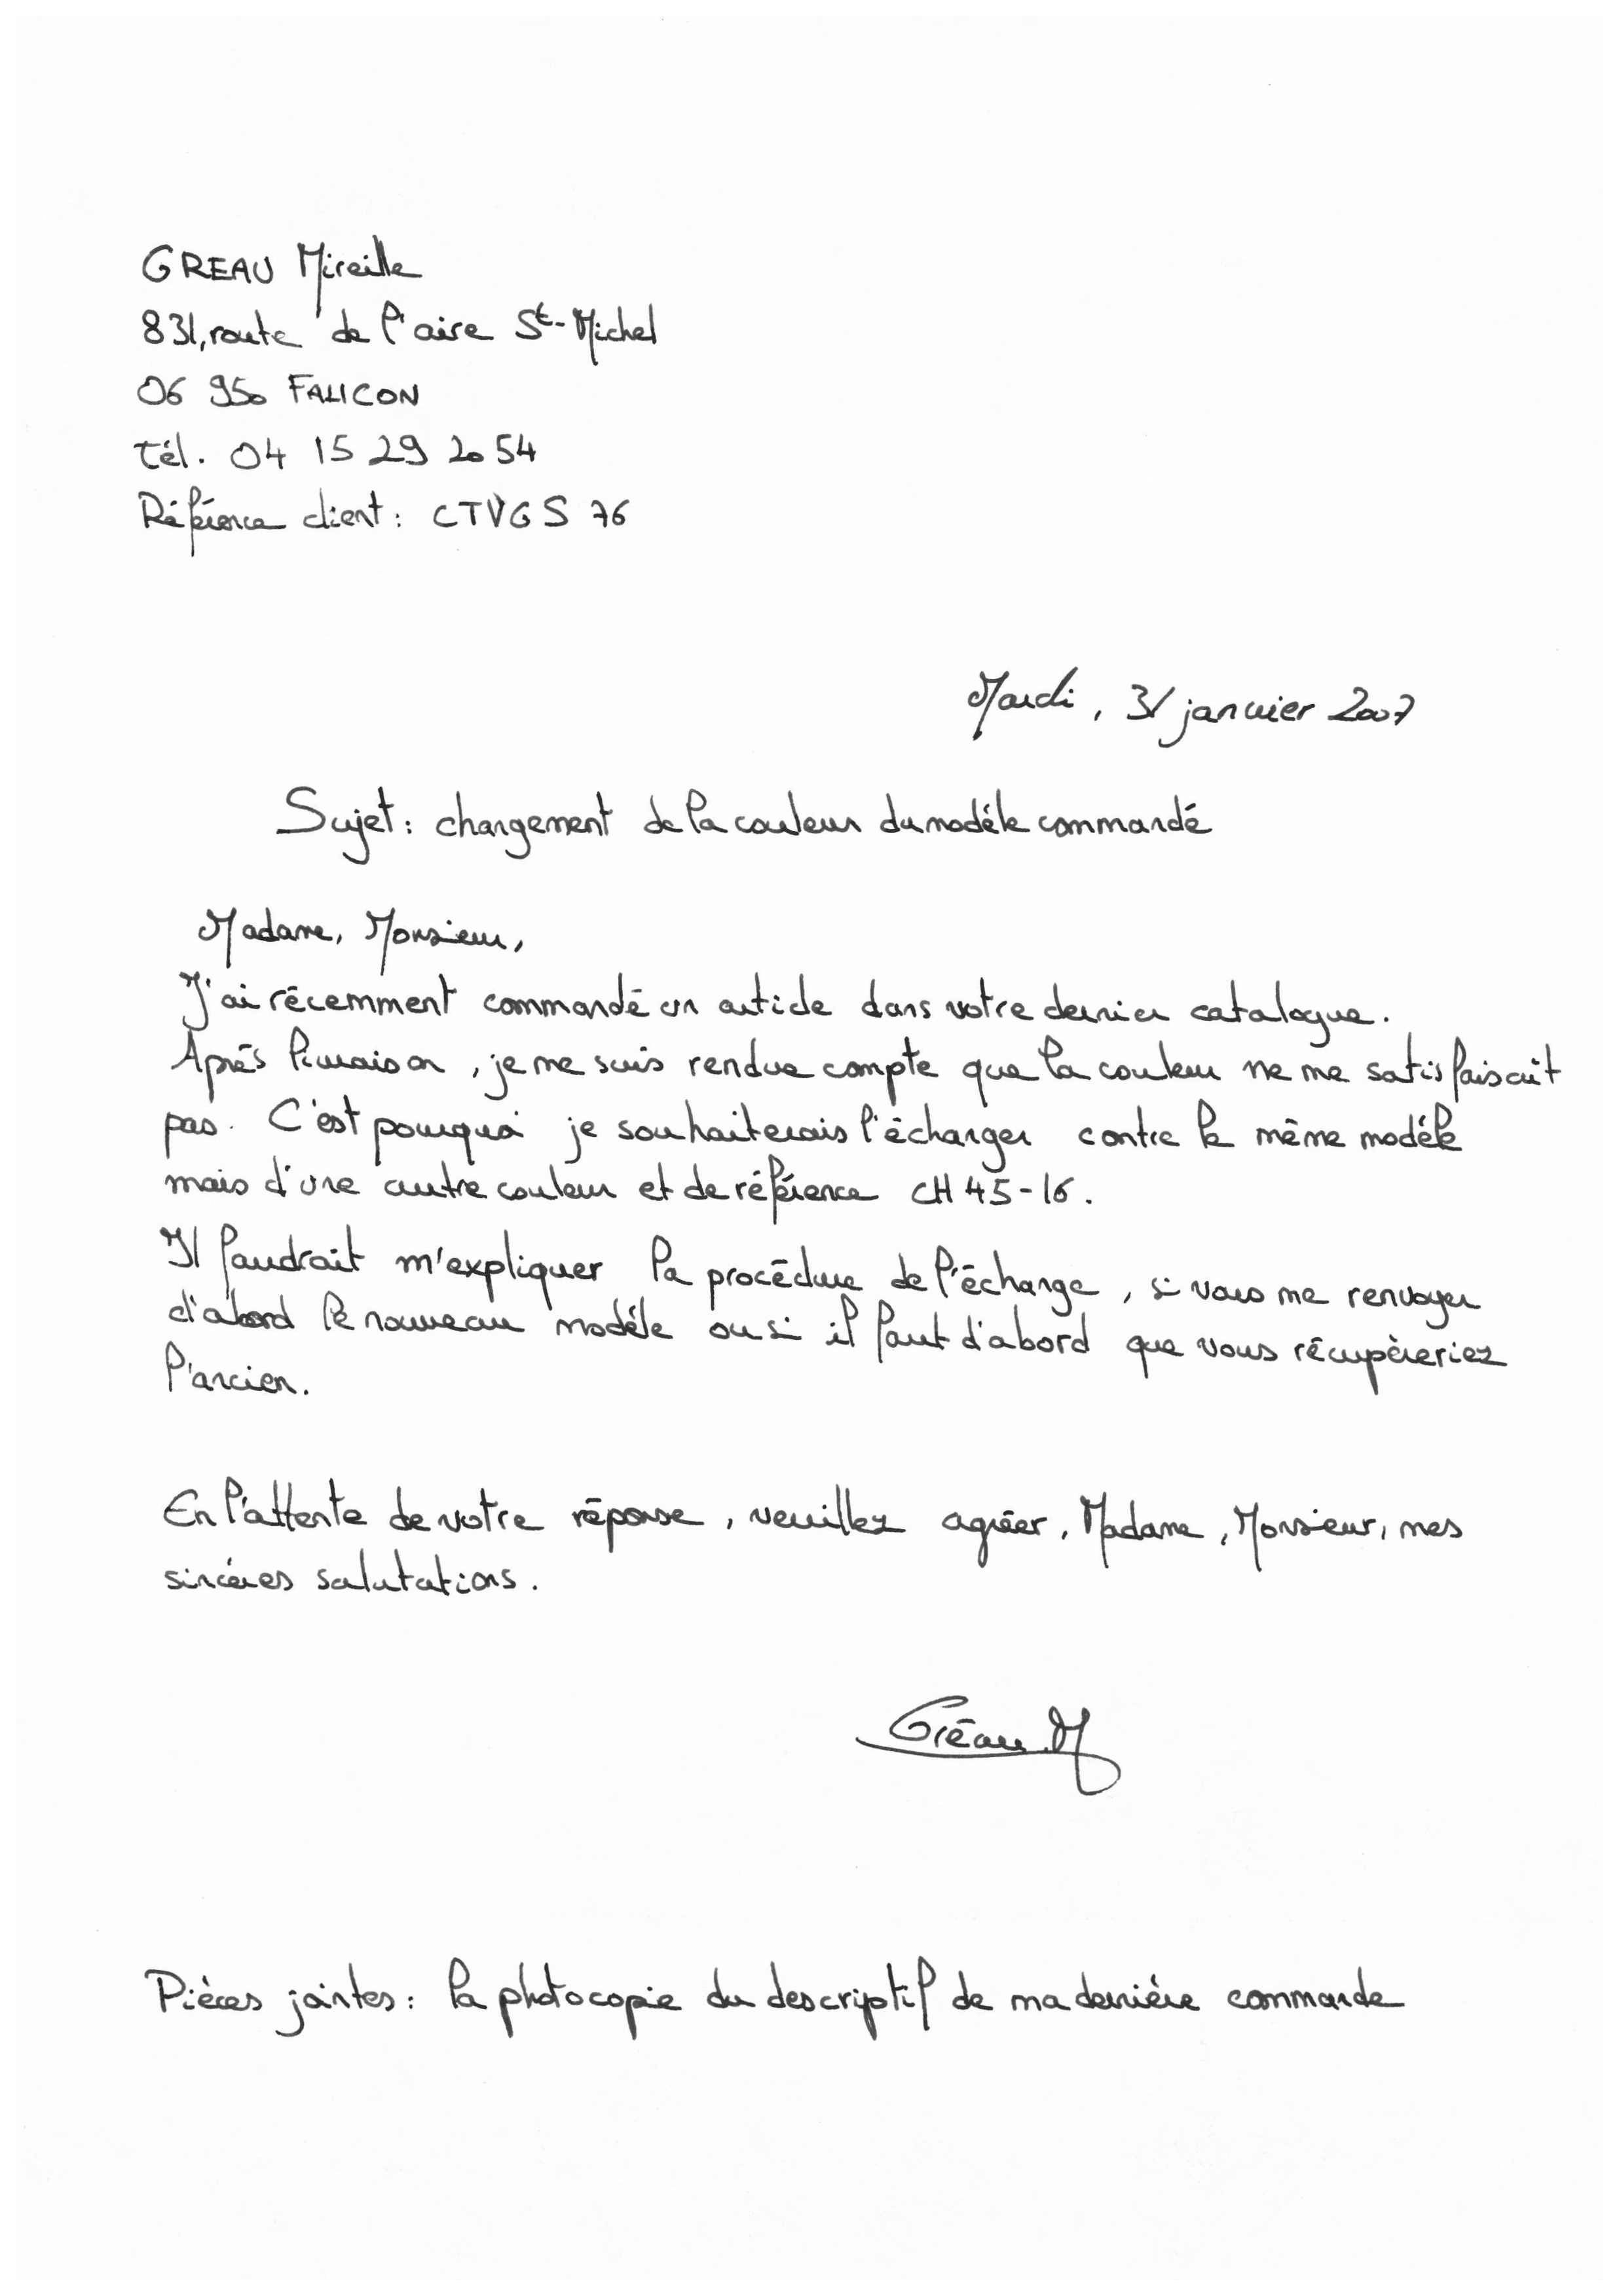 GREAU Mireille
831, route de l'aire St-Michel
06 950 FALICON
tél. 04 15 29 20 54
Référence client : CTVGS 76
Mardi, 31 janvier 2007
Sujet : changement de la couleur du modèle commandé
Madame, Monsieur,
J'ai récemment commandé un article dans votre dernier catalogue.
Après livraison, je me suis rendue compte que la couleur ne me satisfaisait
pas. C'est pourquoi je souhaiterais l'échanger contre le même modèle
mais d'une autre couleur et de référence CH 45-16.
Il faudrait m'expliquer la procédure de l'échange, si vous me renvoyer
d'abord le nouveau modèle ou si il faut d'abord que vous récupèreriez
l'ancien.
En l'attente de votre réponse, veuillez agréer, Madame, Monsieur, mes
sincères salutations.
Gréau.M
Pièces jointes : la photocopie du descriptif de ma dernière commande